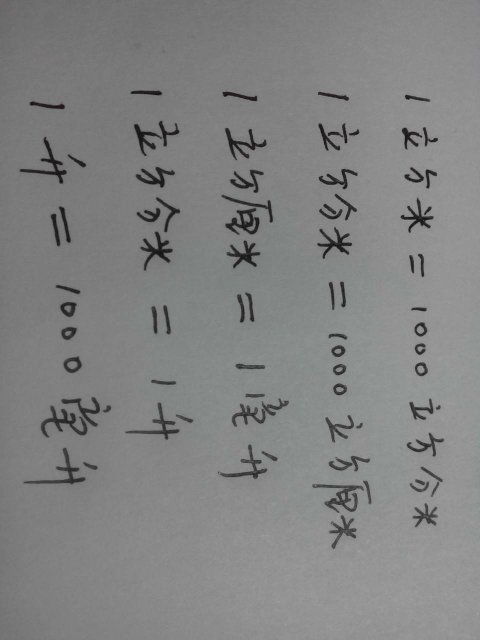 1立方米=1000立方分米
1立方分米=1000立方厘米
1立方厘米=1毫升
1立方分米=1升
1升=1000毫升